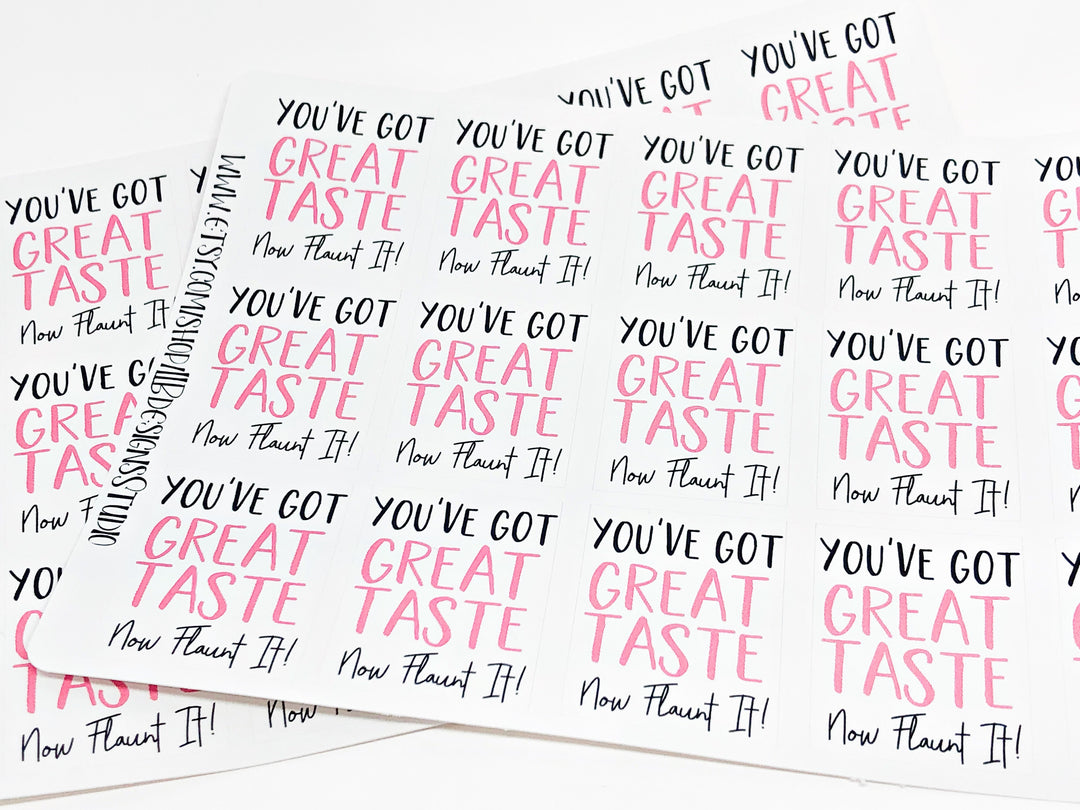 YOU'VE GOT
GREAT
TASTE
Now Flaunt It!
YOU'VE GOT
GREAT
TASTE
Now Flaunt It!
YOU'VE GOT
GREAT
TASTE
Now Flaunt It!
YOU'VE GOT
GREAT
TASTE
Now Flaunt It!
YOU'VE GOT
GREAT
TASTE
Now Flaunt It!
YOU'VE GOT
GREAT
TASTE
Now Flaunt It!
YOU'VE GOT
GREAT
TASTE
Now Flaunt It!
YOU'VE GOT
GREAT
TASTE
Now Flaunt It!
YOU'VE GOT
GREAT
TASTE
Now Flaunt It!
YOU'VE GOT
GREAT
TASTE
Now Flaunt It!
YOU'VE GOT
GREAT
TASTE
Now Flaunt It!
YOU'VE GOT
GREAT
TASTE
Now Flaunt It!
YOU'VE GOT
GREAT
TASTE
Now Flaunt It
YOU'VE
Now
Now Flaunt It!
Now
YOU'VE GOT
YOU'VE GOT
GREAT
TASTE